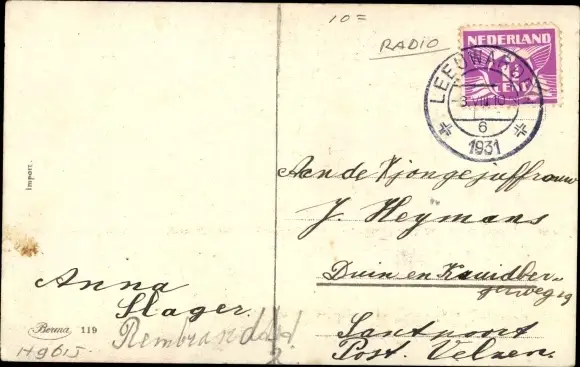 10=
RADIO
NEDERLAND
CENT
LEEUWARDEN
3 VIII 10
6
1931
Import.
Aan de Mejongejuffrouw
J. Heymans
Duin en Kruidber-
gerweg 29
Santpoort
Post. Velzen.
Anna
Slager.
Berma 119
Rembrandt
H9615